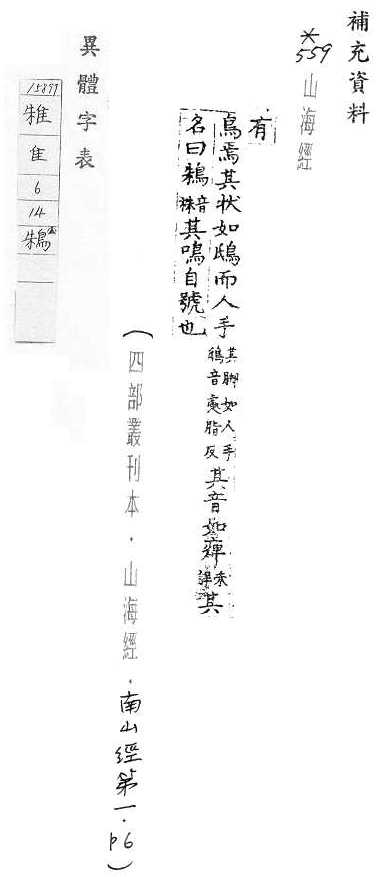 補充資料
*559 山海經
有
鳥焉其狀如鴟而人手其腳如人手鴟音處脂反其音如痺未詳其
名曰鴸音株其鳴自號也
(四部叢刊本．山海經．南山經第一．p6)
異體字表
15899
䧱
隹
6
14
鴸